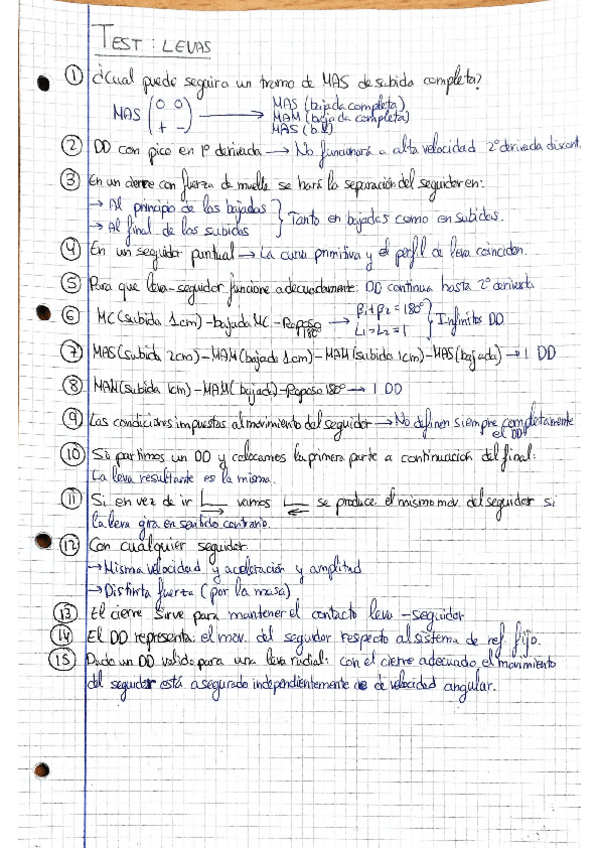 TEST: LEVAS
① ¿Cual puede seguira un tramo de MAS de subida completa?
MAS (0 0 + -) → MAS (bajada completa)
MAM (bajada completa)
MAS (b.l)
② DD con pico en 1ª derivada → No funcionará a alta velocidad 2ª derivada discont.
③ En un cierre con fuerza de muelle se hará la separación del seguidor en:
→ Al principio de las bajadas
→ Al final de las subidas } Tanto en bajadas como en subidas.
④ En un seguidor puntual → La curva primitiva y el perfil de leva coinciden.
⑤ Para que leva-seguidor funcione adecuadamente: DD continua hasta 2ª derivada
⑥ MC (subida 1cm) - bajada MC - Reposo 180° → β1+β2=180° L1=L2=1 } Infinitos DD
⑦ MAS (subida 2cm) - MAM (bajada 1cm) - MAM (subida 1cm) - MAS (bajada) → 1 DD
⑧ MAM (subida 1cm) - MAM (bajada) - Reposo 180° → 1 DD
⑨ Las condiciones impuestas al movimiento del seguidor → No definen siempre completamente
el DD
⑩ Si partimos un DD y colocamos la primera parte a continuación del final:
La leva resultante es la misma.
⑪ Si en vez de ir → vamos ← se produce el mismo mov. del seguidor si
la leva gira en sentido contrario.
⑫ Con cualquier seguidor
→ Misma velocidad y aceleración y amplitud
→ Distinta fuerza (por la masa)
⑬ El cierre sirve para mantener el contacto leva-seguidor
⑭ El DD representa: el mov. del seguidor respecto al sistema de ref. fijo.
⑮ Dado un DD valido para una leva radial: con el cierre adecuado, el movimiento
del seguidor está asegurado independientemente de velocidad angular.